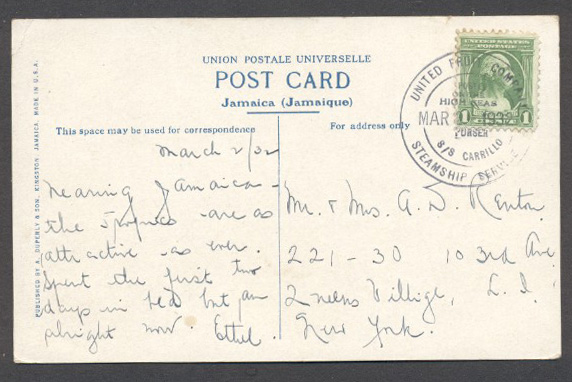 UNION POSTALE UNIVERSELLE
POST CARD
Jamaica (Jamaique)
This space may be used for correspondence
For address only
March 2/32
Nearing Jamaica -
the tropics are as
attractive as ever.
Spent the first two
days in bed but am
alright now. Ethel.
Mr. & Mrs. A. D. Renton
221-30 103rd Ave
Queens Village, L.I.
New York.
PUBLISHED BY A. DUPERLY & SON, KINGSTON, JAMAICA. MADE IN U.S.A.
UNITED STATES
POSTAGE
1 1
UNITED FRUIT COMPANY
HIGH SEAS
MAR 1932
PURSER
S/S CARRILLO
STEAMSHIP SERVICE